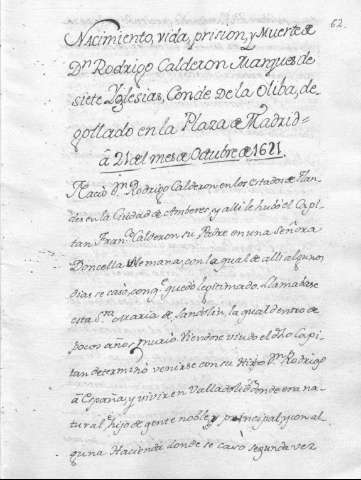 62
Nacimiento, vida, prision, y Muerte de
Dn. Rodrigo Calderon Marques de
siete Yglesias, Conde De la Oliba, de-
gollado en la Plaza de Madrid=
â 21 del mes de Octubre de 1621.
Nacio Dn. Rodrigo Calderon en los Estados de Flan
des en la Ciudad de Amberes, y alli le hubó el Capi
tan Franco. Calderon su Padre en una Señora
Doncella Alemana, con la qual de alli algunos
dias se casó, con q. quedó legitimado. Llamabase
esta Sra. Maria de Sandelin, la qual dentro de
pocos años murió. Viendose viudo el dho Capi
tan determinó venirse con su Hijo Dn. Rodrigo
â España y vivir en Valladolid donde era na
tural, hijo de gente noble, y principal, y con al
guna Hacienda donde se casó segunda vez